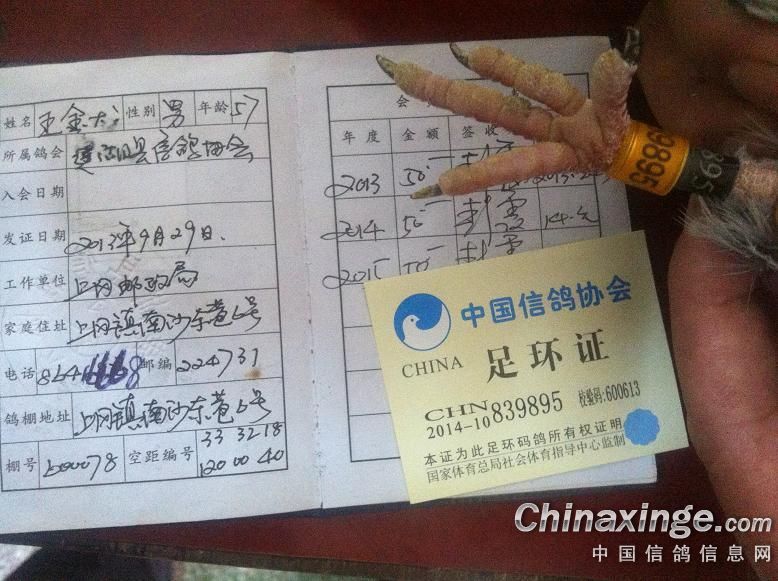 姓名 王金 性别 男 年龄 57
所属鸽会 县信鸽协会
入会日期
发证日期 2013年9月29日.
工作单位 上冈邮政局
家庭住址 上冈镇南沙东巷6号
电话 邮编 224731
鸽棚地址 上冈镇南沙东巷6号
棚号 600078 空距编号 33 3218
120 00 40
会
年度 金额 签收
2013 50
2014 50
2015
9895
中国信鸽协会
CHINA 足环证
CHN
2014-10 839895 校验码:600613
本证为此足环码鸽所有权证明
国家体育总局社会体育指导中心监制
Chinaxinge.com
中国信鸽信息网